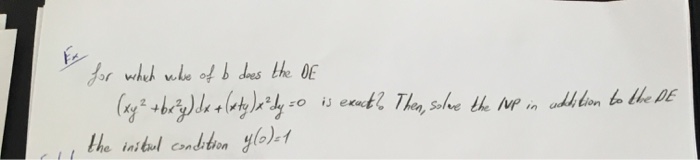 Ex
for which value of b does the DE
(xy² + bx²y)dx + (x+y)x²dy = 0 is exact? Then, solve the IVP in addition to the DE
the initial condition y(0)=1